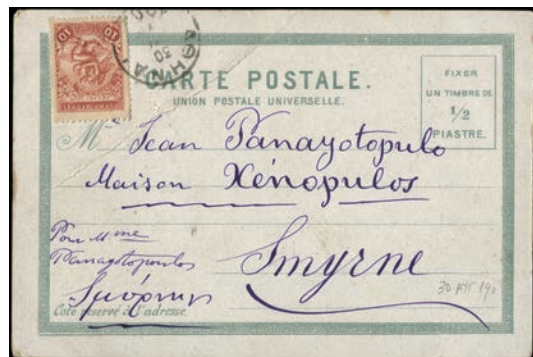 CARTE POSTALE.
UNION POSTALE UNIVERSELLE.
FIXER
UN TIMBRE DE
1/2
PIASTRE.
10 10
30
ΑΘΗΝΑ
Mr Jean Panayotopulo
Maison Xénopulos
Smyrne
Pour Mme
Panagotopoulos
Σμύρνην
Coté réservé à l'adresse
30 190